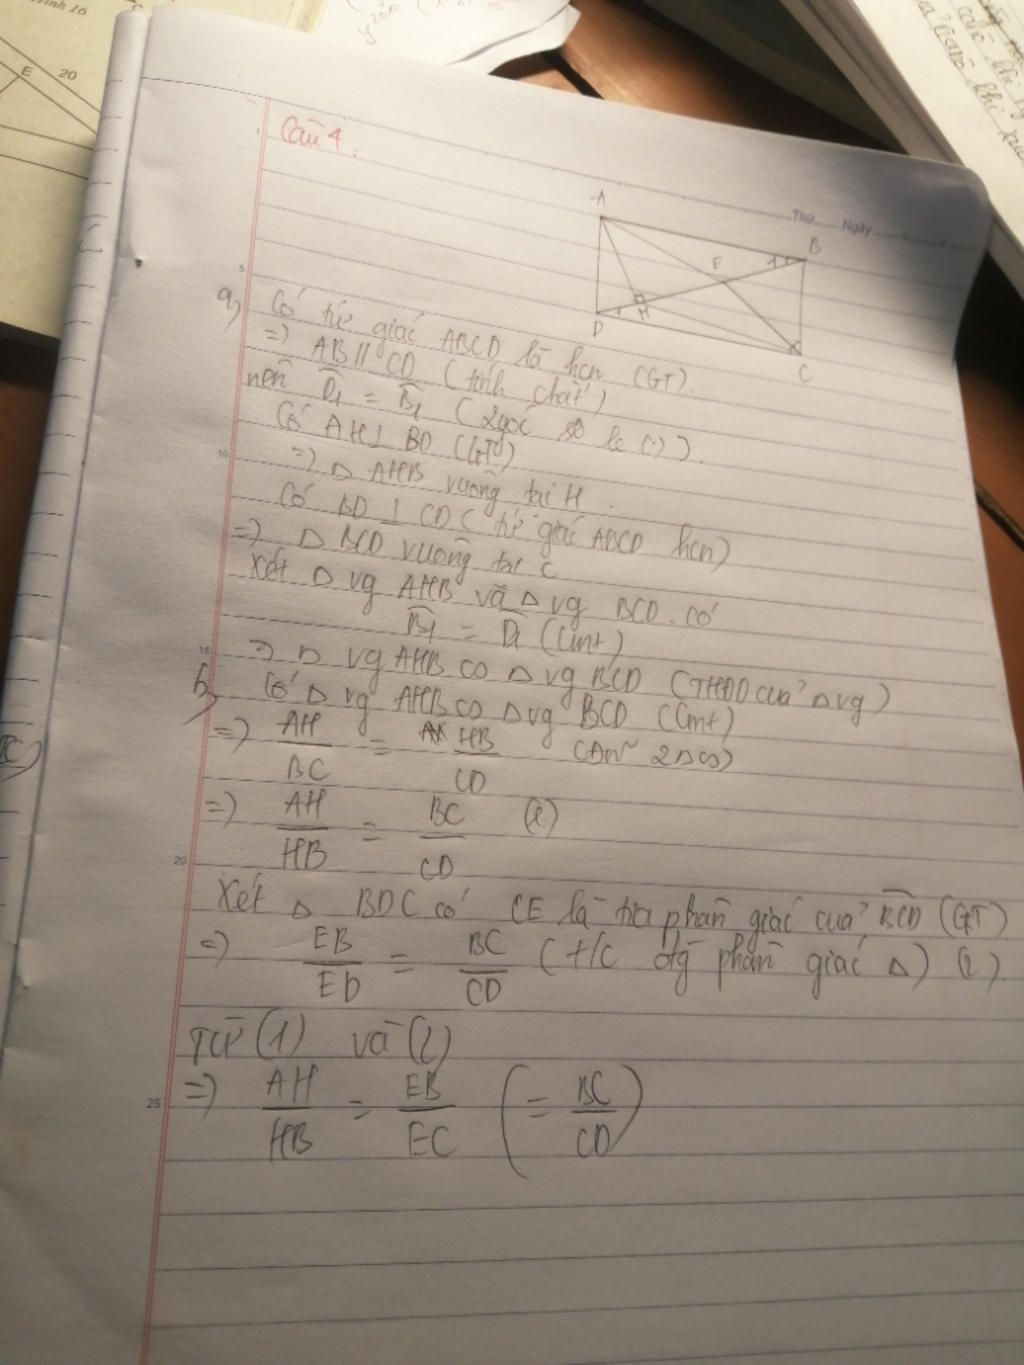 Hình 16
E 20
Câu 4.
Thứ Ngày
A
B
E
1
D 1 H
C
5
a) Có tứ giác ABCD là hcn (GT).
=) AB // CD (tính chất)
nên D1 = B1 (2góc so le (.) ).
Có AH ⊥ BD (GT)
10
=) Δ AHB vuông tại H.
Có BD ⊥ CD ( tứ giác ABCD hcn)
=) Δ BCD vuông tại C
Xét Δ vg AHB và Δ vg BCD. có
B1 = D1 (Cmt)
15
=) Δ vg AHB ∽ Δ vg BCD (THĐD của Δ vg)
b) Có Δ vg AHB ∽ Δ vg BCD (Cmt)
=) AH/BC = HB/CD (ĐN 2Δ∽)
=) AH/HB = BC/CD
20
Xét Δ BDC có CE là tia phân giác của BCD (GT)
=) EB/ED = BC/CD ( t/c đg phân giác Δ) (2).
Từ (1) và (2)
=) AH/HB = EB/EC (= BC/CD)
25